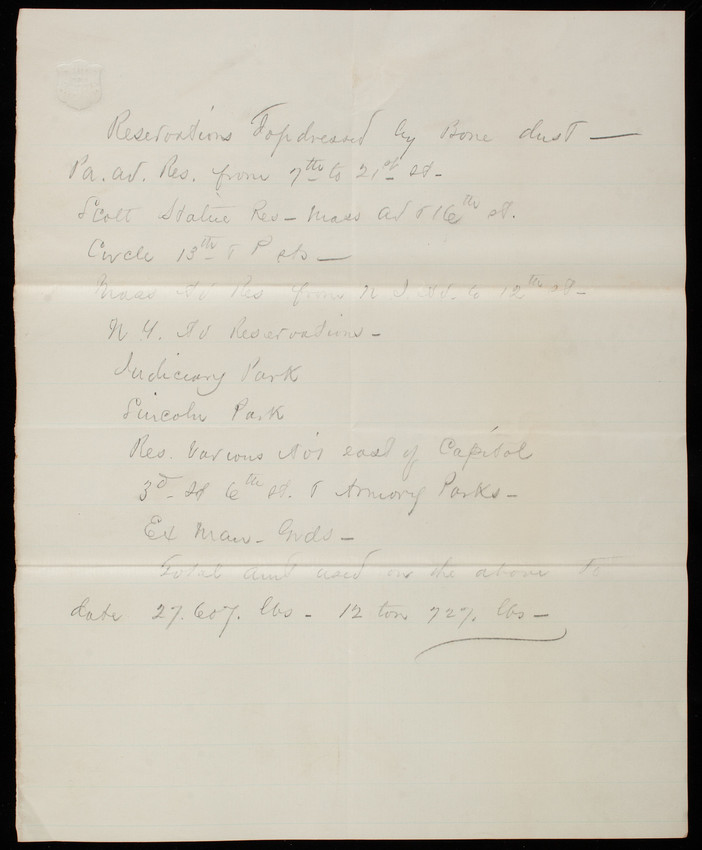 Reservations Topdressed by Bone dust —
Pa. av. Res. from 7th to 21st st -
Scott Statue Res - Mass av & 16th st.
Circle 13th & P sts —
Mass Av Res from N J Av. to 12th st -
N Y. Av Reservations -
Judiciary Park
Lincoln Park
Res. Various Av's east of Capitol
3d - st 6th st. & Armory Parks -
Ex Man - Grds -
Total amt used on the above to
date 27.607. lbs - 12 ton 727. lbs -